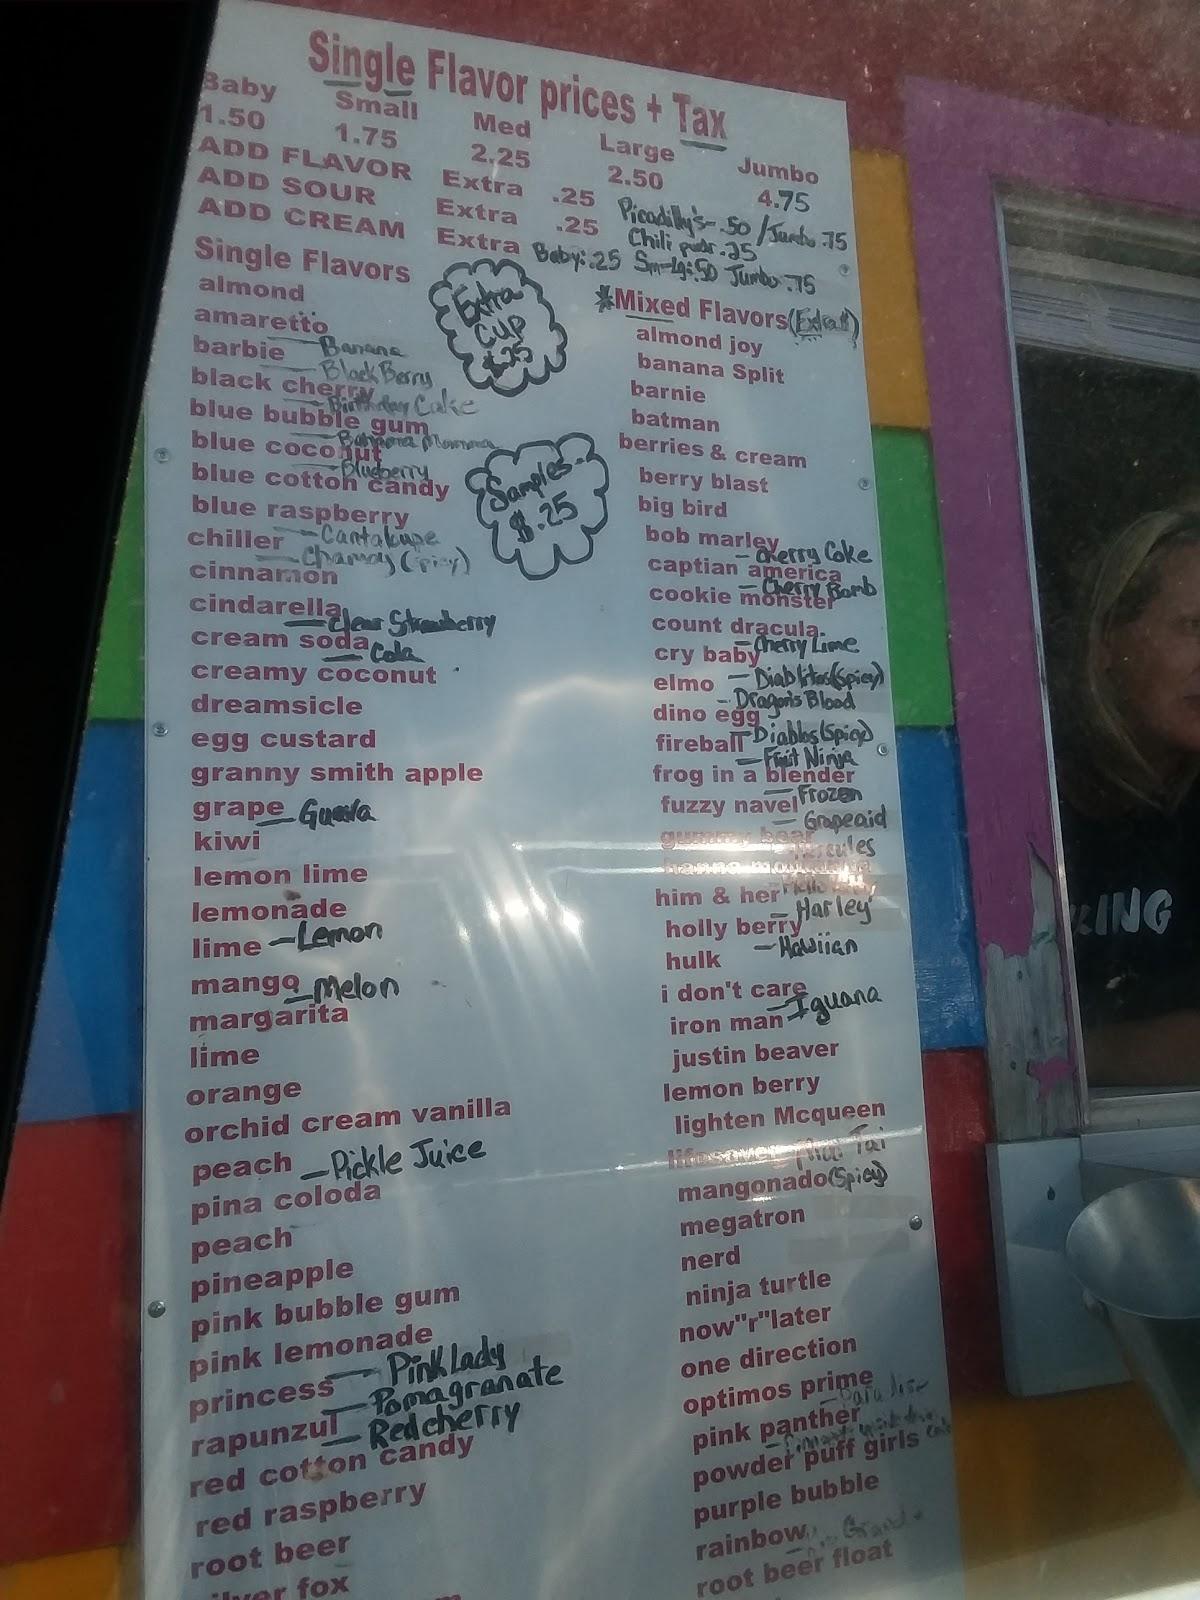 Single Flavor prices + Tax
Baby Small Med Large Jumbo
1.50 1.75 2.25 2.50 4.75
ADD FLAVOR Extra .25
ADD SOUR Extra .25
ADD CREAM Extra Baby:.25 Sm-Lg:.50 Jumbo:.75
Picadilly's-.50/Jumbo.75
Chili pwdr.25
Single Flavors
almond
amaretto
- Banana
barbie
- BlackBerry
black cherry
- Birthday Cake
blue bubble gum
- Bahama Momma
blue coconut
- Blueberry
blue cotton candy
blue raspberry
- Cantalupe
chiller
- Chamoy (spicy)
cinnamon
cindarella
- Clear Strawberry
cream soda
- Cola
creamy coconut
dreamsicle
egg custard
granny smith apple
grape - Guava
kiwi
lemon lime
lemonade
lime - Lemon
mango - Melon
margarita
lime
orange
orchid cream vanilla
peach - Pickle Juice
pina coloda
peach
pineapple
pink bubble gum
pink lemonade
- Pink Lady
princess
- Pomagranate
rapunzul
- Red cherry
red cotton candy
red raspberry
root beer
silver fox
Extra
CUP
.25
Samples-
$.25
*Mixed Flavors(Extra!!)
almond joy
banana Split
barnie
batman
berries & cream
berry blast
big bird
bob marley
- Cherry Coke
captian america
- Cherry Bomb
cookie monster
count dracula
- Cherry Lime
cry baby
elmo - Diablitos(spicy)
- Dragon's Blood
dino egg
- Diablos(spicy)
fireball
- Fruit Ninja
frog in a blender
- Frozen
fuzzy navel
- Grapeaid
gummy bear
- Hercules
him & her
- Harley
holly berry
- Hawiian
hulk
i don't care
- Iguana
iron man
justin beaver
lemon berry
lighten Mcqueen
lifesaver - Mai Tai
mangonado(spicy)
megatron
nerd
ninja turtle
now"r"later
one direction
optimos prime
- Paradise
pink panther
powder puff girls
purple bubble
rainbow
root beer float
KING